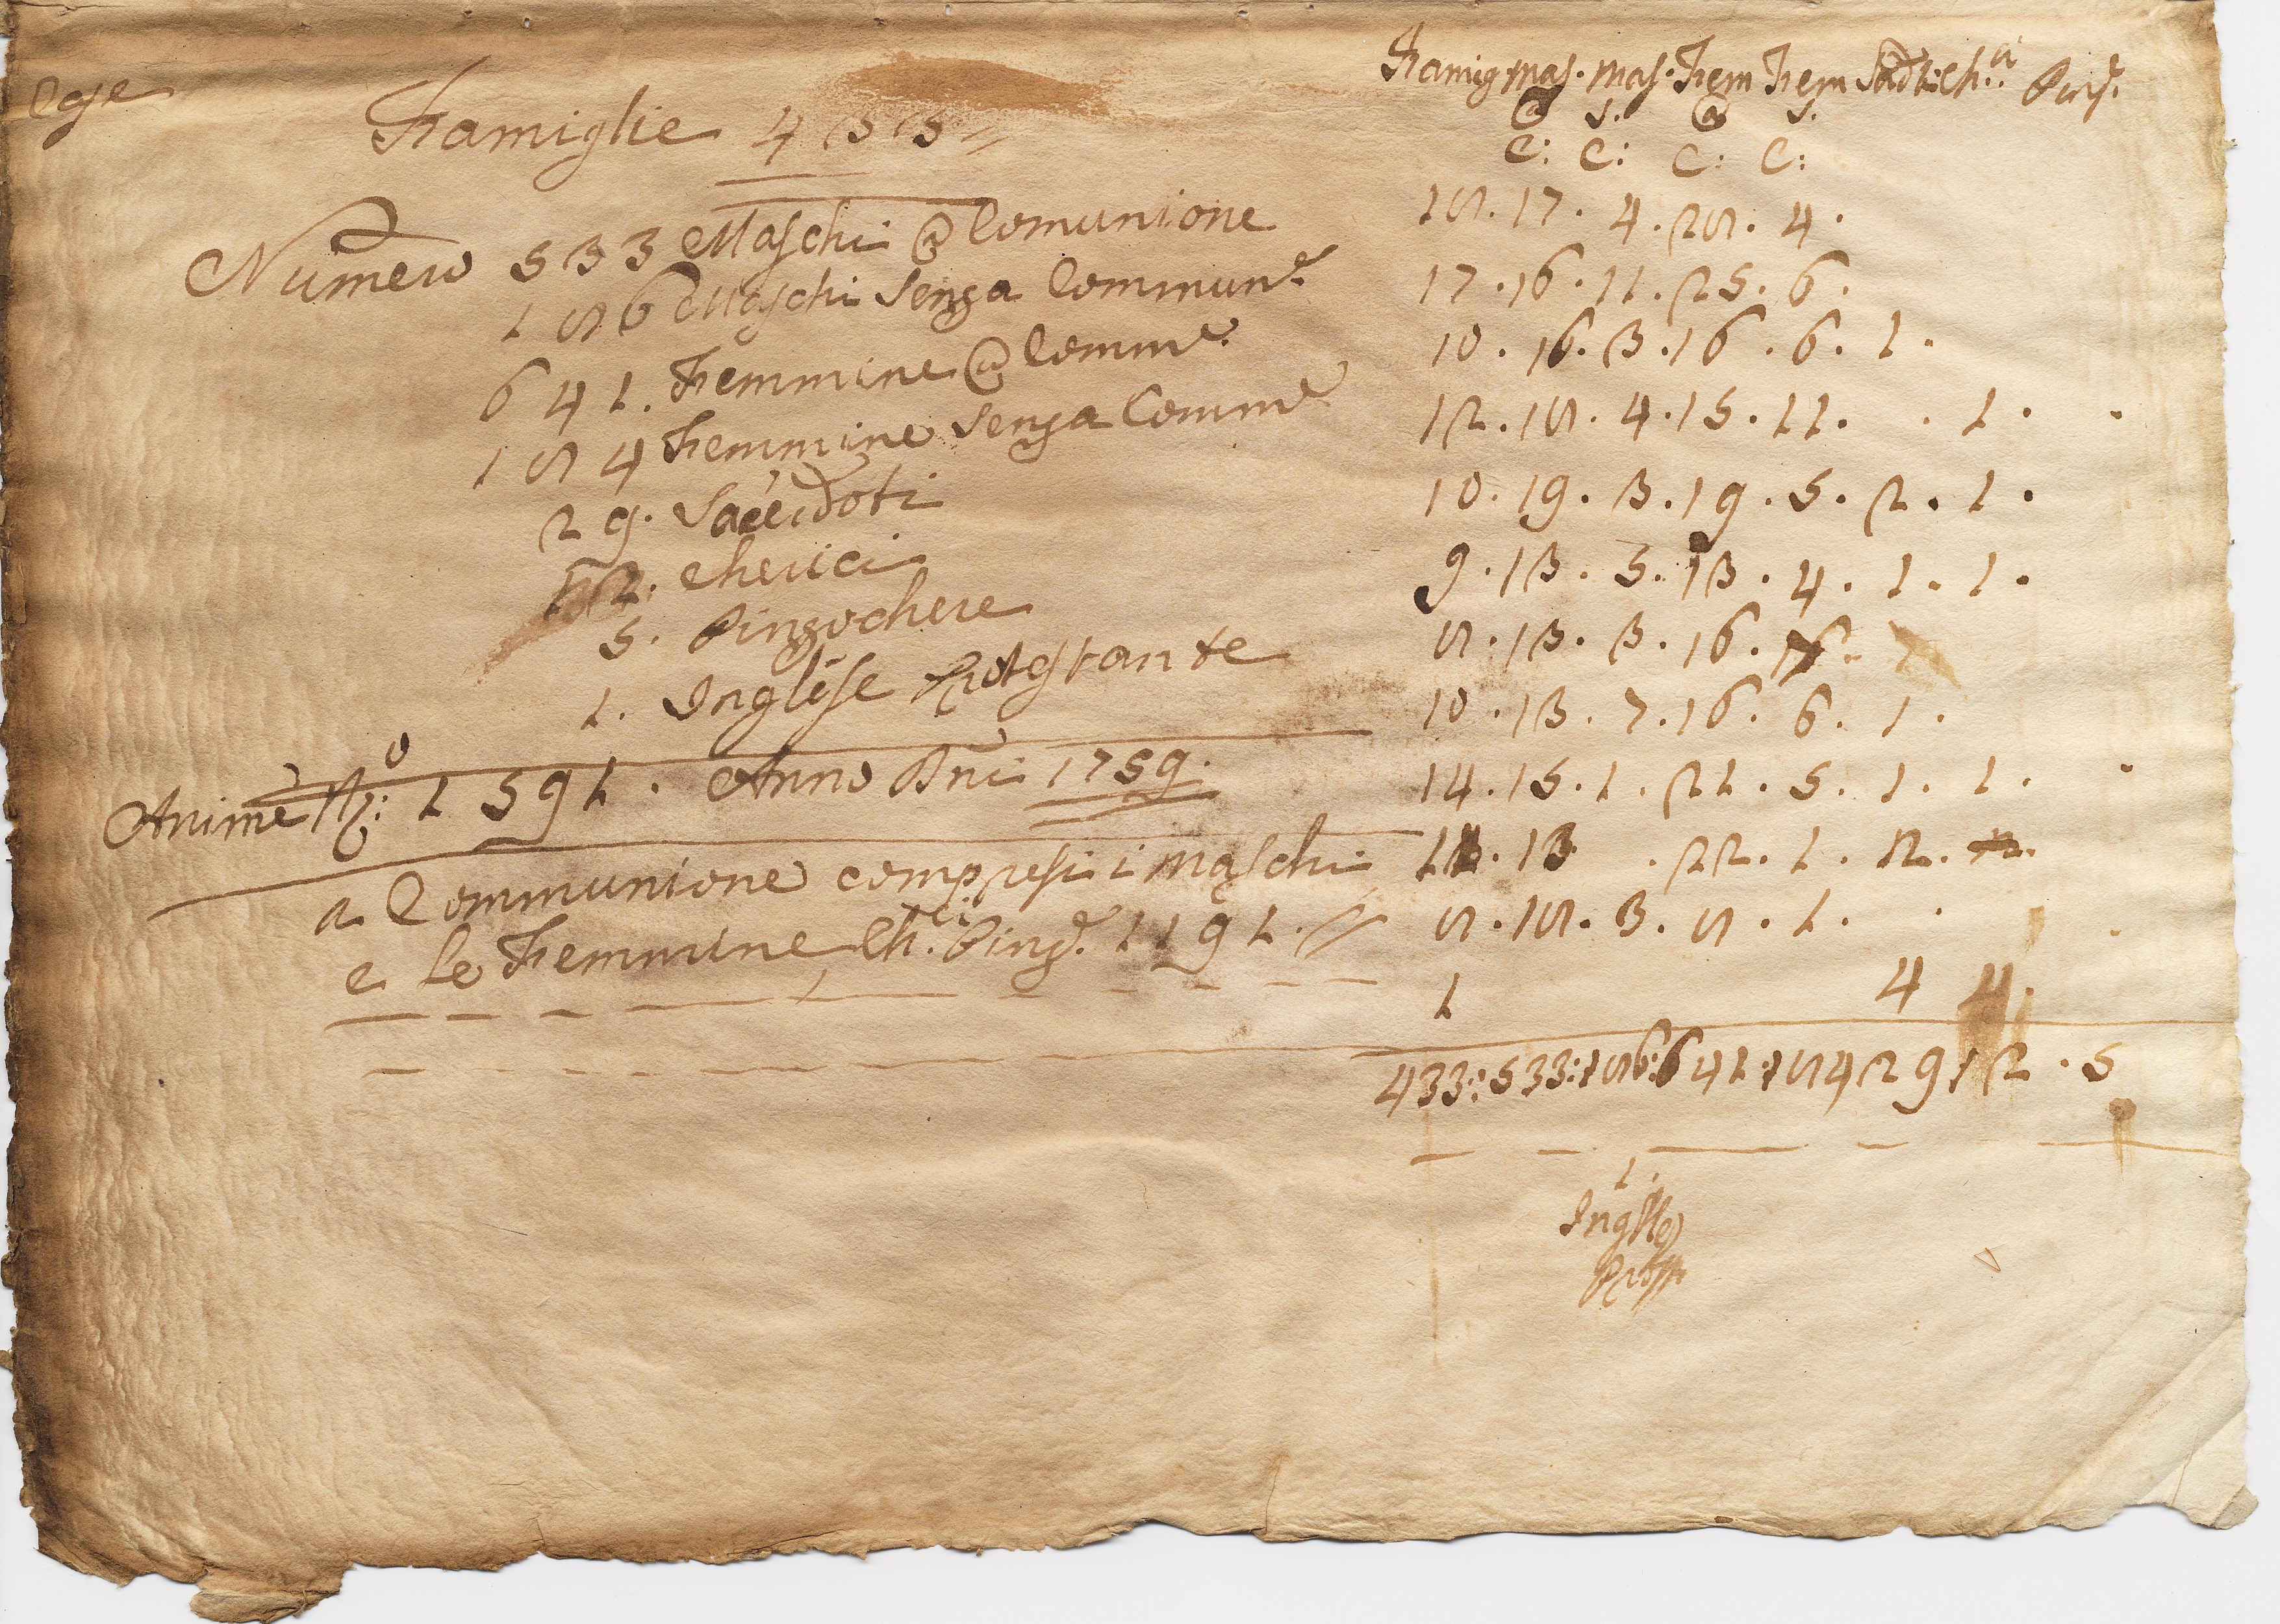 ege
Famiglie 433
Numero 533 Maschi @ Comunione
186 Maschi senza Commun.e
641. Femmine @ Comm.e
184 Femmine senza Comm.e
29. Sacerdoti
12. Cherici
5. Pinzochere
1. Inglese Protestante
Anime N.o: 1591. Anno Dni 1759.
a Communione compresi i maschi
e le Femmine Ch.ci Pinz.e 1191.
Famig mas. mas. Fem Fem Sacd: Ch.ci Pinz.e
@ s. @ s.
C: C: C: C:
18. 17. 4. 28. 4.
17. 16. 11. 25. 6.
10. 16. 3. 16. 6. 1.
12. 18. 4. 15. 11. . 1. .
10. 19. 3. 19. 5. 2. 1.
9. 13. 5. 13. 4. 1. 1.
8. 13. 3. 16.
10. 13. 7. 16. 6. 1.
14. 15. 1. 21. 5. 1. 1. .
13 . 22. 1. 2.
8. 18. 3. 8. 1. . .
1 4 4.
433: 533: 186: 641: 184 29 12 . 5
1.
Inglese